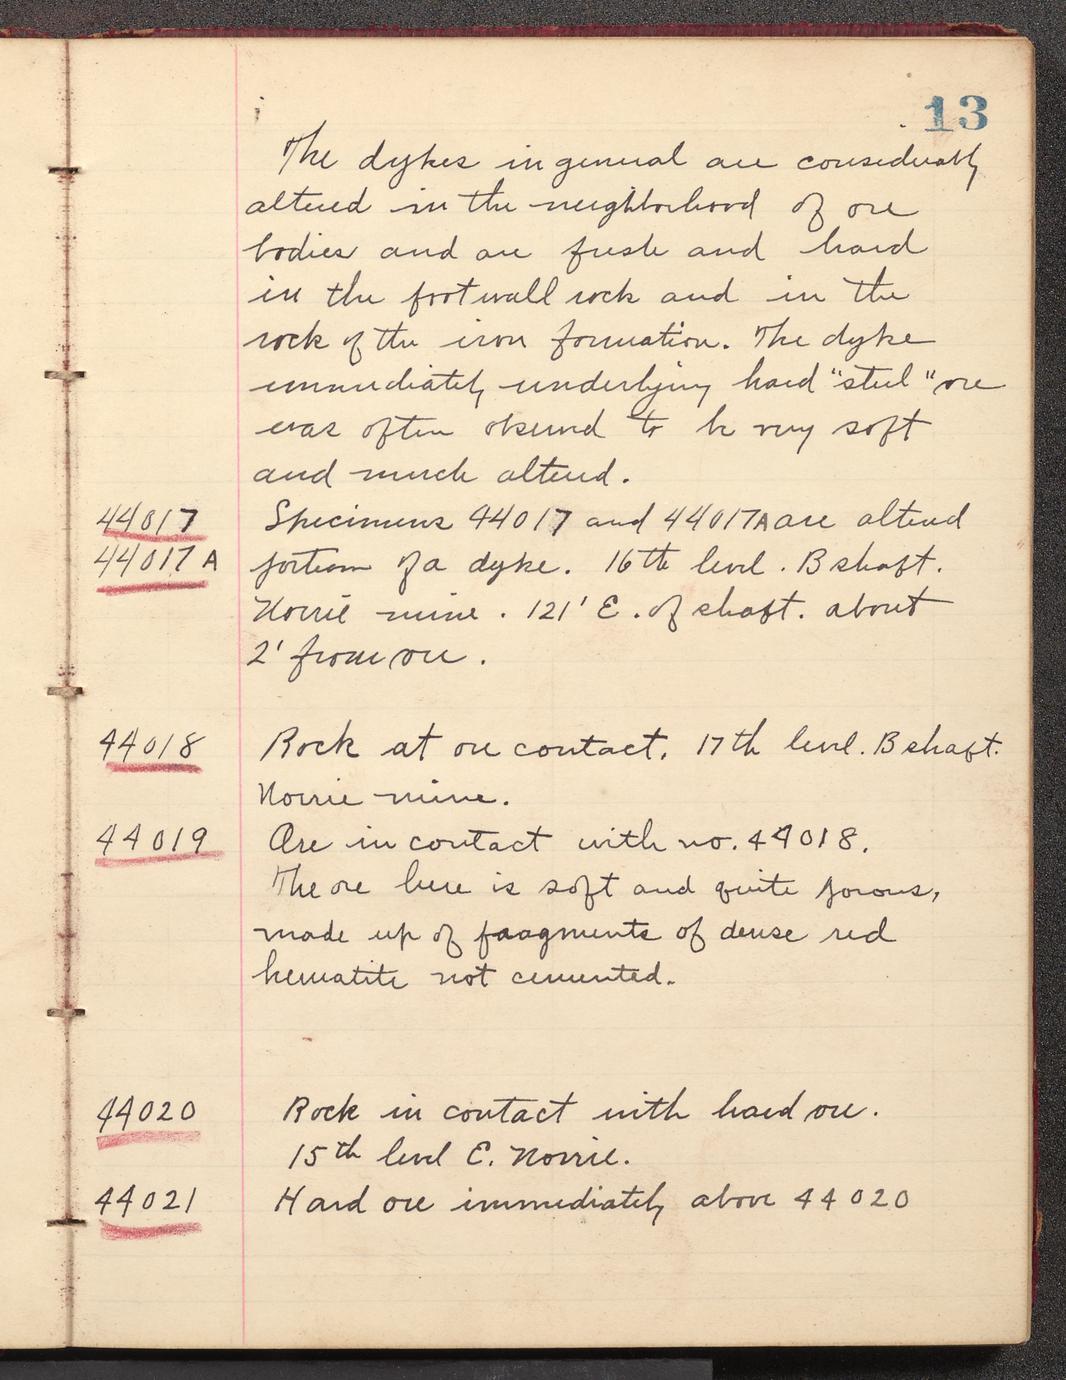 13
The dykes in general are considerably
altered in the neighborhood of ore
bodies and are fresh and hard
in the footwall rock and in the
rock of the iron formation. The dyke
immediately underlying hard "steel" ore
was often observed to be very soft
and much altered.
44017 Specimens 44017 and 44017A are altered
44017A portion of a dyke. 16th level. B shaft.
Norrie mine. 121' E. of shaft. about
2' from ore.
44018 Rock at ore contact. 17th level. B shaft.
Norrie mine.
44019 Ore in contact with no. 44018.
The ore here is soft and quite porous,
made up of fragments of dense red
hematite not cemented.
44020 Rock in contact with hard ore.
15th level E. Norrie.
44021 Hard ore immediately above 44020